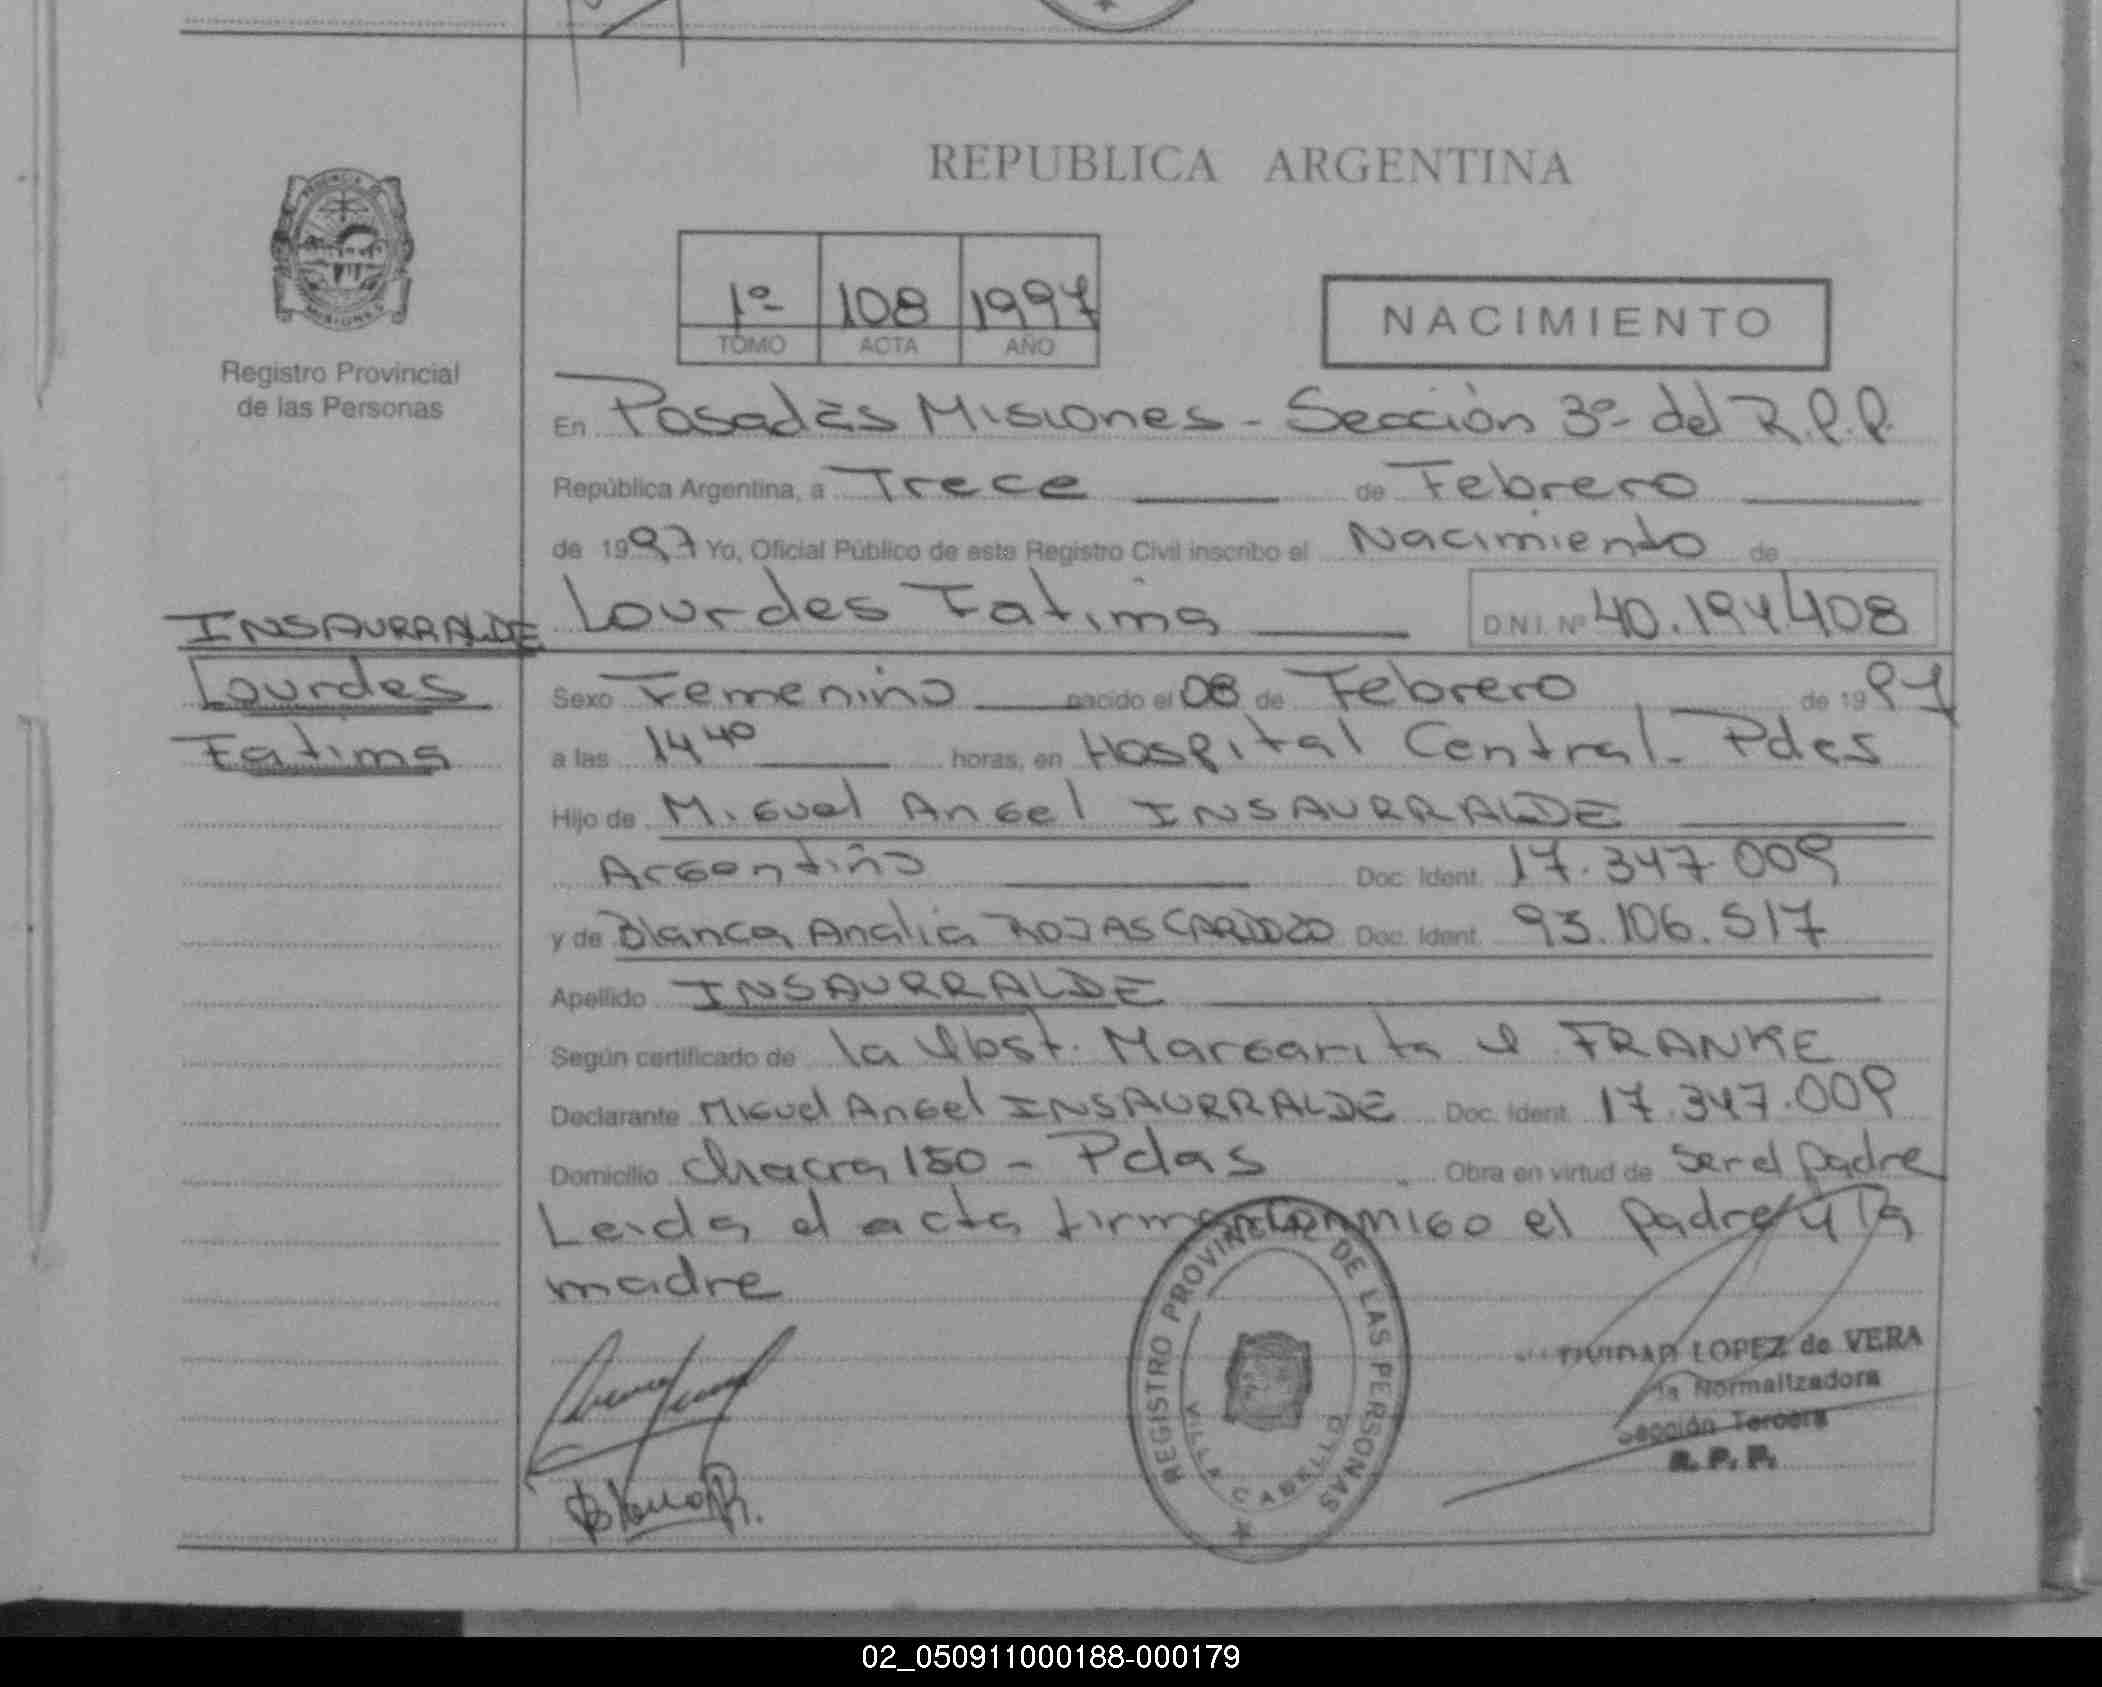 REPUBLICA ARGENTINA
PROVINCIA DE MISIONES
Registro Provincial
de las Personas
1º 108 1997
TOMO ACTA AÑO
NACIMIENTO
En Posadas Misiones - Sección 3º del R.P.P.
República Argentina, a Trece de Febrero
de 1997 Yo, Oficial Público de este Registro Civil inscribo el Nacimiento de
INSAURRALDE
Lourdes
Fatima
Lourdes Fatima D.N.I. Nº 40.194408
Sexo Femenino nacido el 08 de Febrero de 1997
a las 14 40 horas, en Hospital Central - Pdas
Hijo de Miguel Angel INSAURRALDE
Argentino Doc. Ident. 17.347.009
y de Blanca Analia ROJAS CARDOZO Doc. Ident. 93.106.517
Apellido INSAURRALDE
Según certificado de la Obst. Margarita FRANKE
Declarante Miguel Angel INSAURRALDE Doc. Ident. 17.347.009
Domicilio Chacra 150 - Pdas Obra en virtud de ser el padre
Leida el acta firman conmigo el padre y la
madre
REGISTRO PROVINCIAL DE LAS PERSONAS
VILLA CABELLO
LOPEZ de VERA
Normalizadora
Sección Tercera
R. P. P.
Blanca R.
02_050911000188-000179